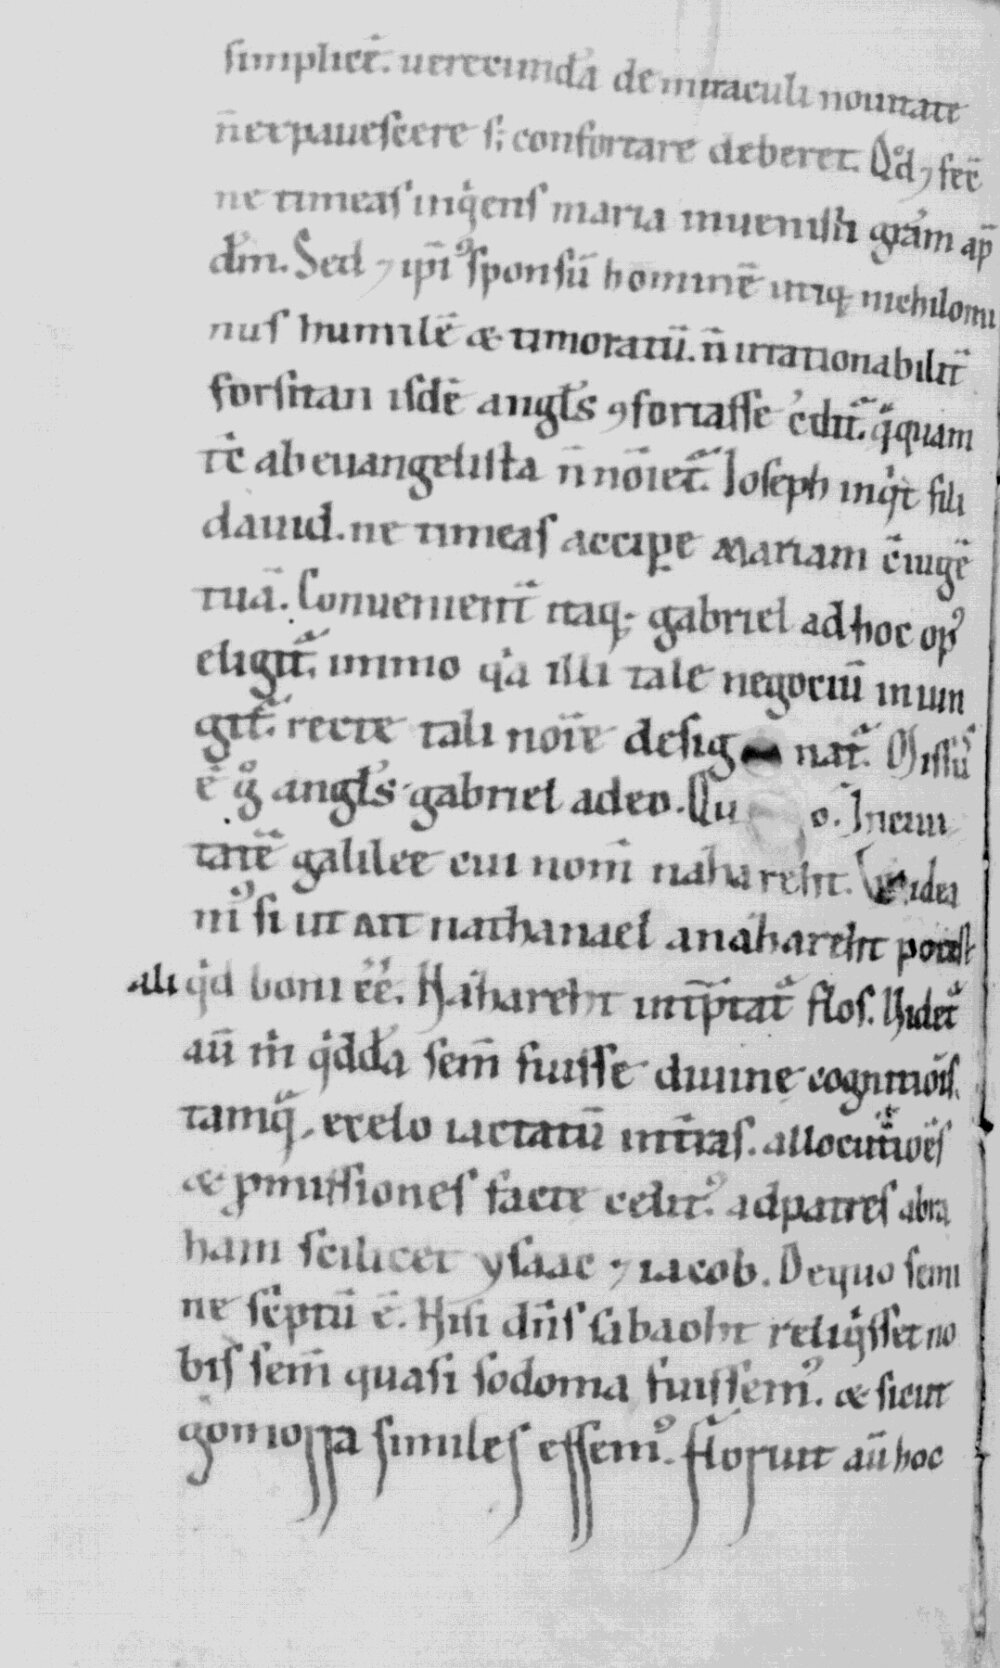 simplicē. uerecunda de miraculi nouitate
n̄ expauescere s; confortare deberet. Qd̊ ⁊ fec̄
ne timeas inqͥens maria inuenisti gr̄am ap̄
dm̄. Sed ⁊ ipīꝰ sponsū hominē utiq; nichilomi
nus humilē & timoratū. n̄ irrationabilit̄
forsitan isdē angłs ꝯfortasse c̉ditͬ. qͣquam
tc̄ ab euangelista n̄ nōietͬ. Ioseph inqͥt fili
dauid. ne timeas accipe Mariam c̄iugē
tuā. Conuenient̄ itaq; gabriel ad hoc opꝰ
eligitͬ. immo qͥa illi tale negociū iniun
gitͬ. recte tali noīe desig natͬ. Missꝰ
ē gͦ angłs gabriel a deo. Qu o. In ciui
tatē galilee cui nom̄ nazareht. Videa
mꝰ si ut ait nathanael a nazareht potest
ali qͥd boni eē. Nazareht int̄p̄tatͬ flos. Videtͬ
aū m̄ qͥdda sem̄ fuisse diuine cognitiōis.
tamqͣ, e celo iactatū int̄ras. allocutiōes
& ꝓmissiones facte celitꝰ. ad patres abra
ham scilicet ysaac ⁊ iacob. De quo semi
ne sc̄ptū ē. Nisi dn̄s sabaoht reliqͥsset no
bis sem̄ quasi sodoma fuissemꝰ. & sicut
gomorra similes essemꝰ. floruit aū hoc